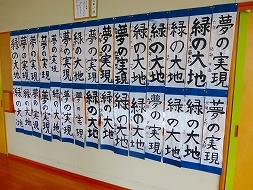 緑の大地
夢の実現
夢の実現
緑の大地
夢の実現
夢の実現
緑の大地
緑の大地
緑の大地
緑の大地
夢の実現
緑の大地
夢の実現
夢の実現
緑の大地
夢の実現
緑の大地
緑の大地
緑の大地
夢の実現
緑の大地
緑の大地
夢の実現